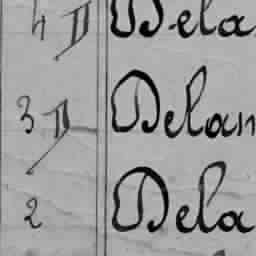 4 D Dela
3 D Delan
2 Dela